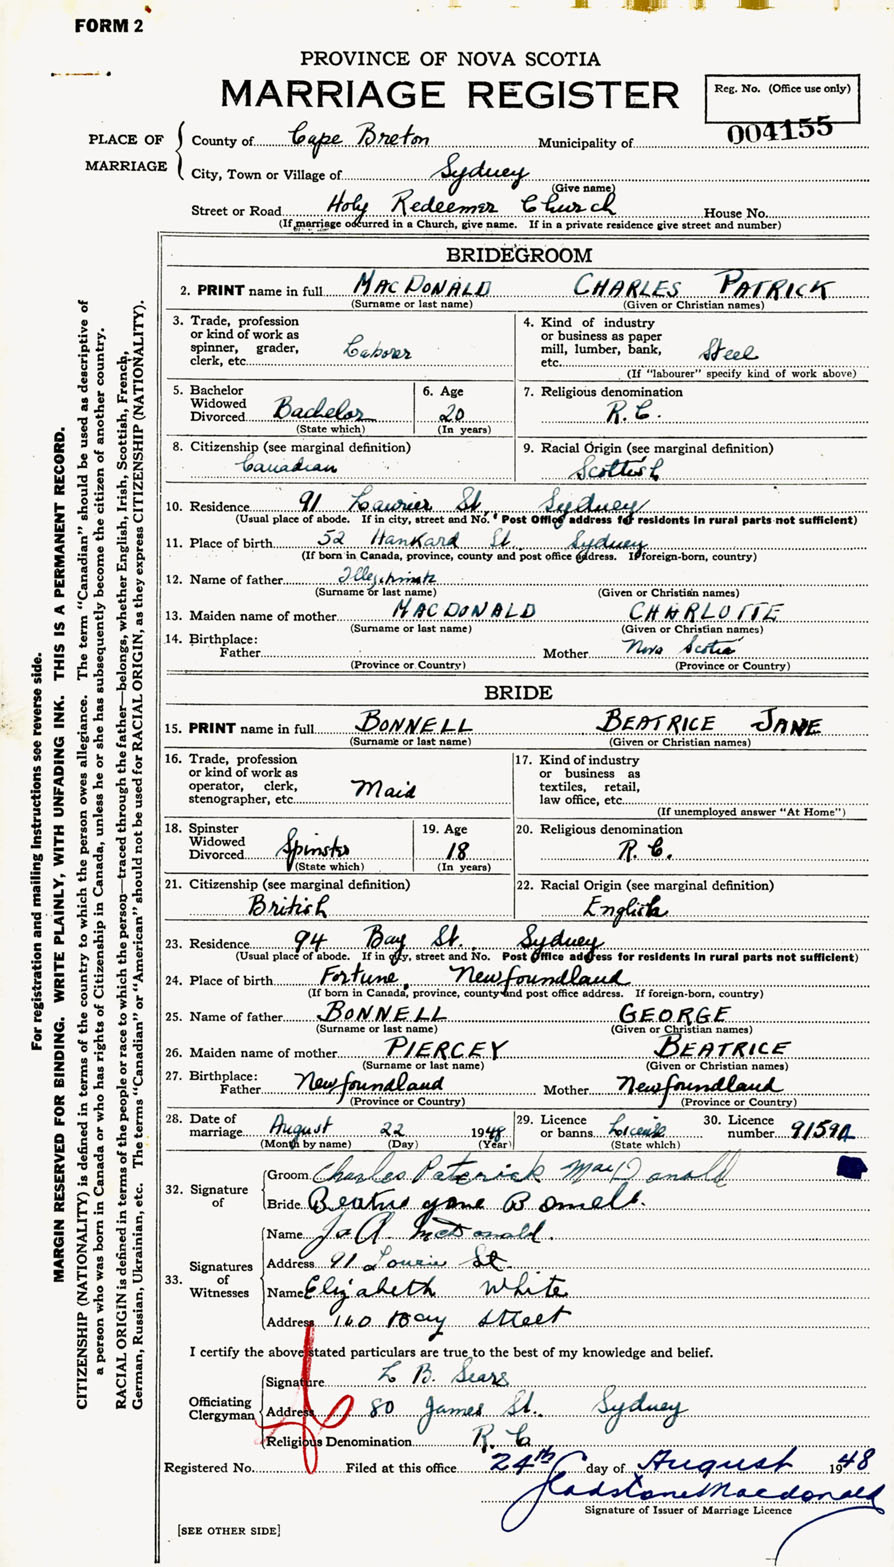 FORM 2
PROVINCE OF NOVA SCOTIA
MARRIAGE REGISTER
Reg. No. (Office use only)
004155
PLACE OF MARRIAGE
County of Cape Breton Municipality of
City, Town or Village of Sydney
(Give name)
Street or Road Holy Redeemer Church House No.
(If marriage occurred in a Church, give name. If in a private residence give street and number)
BRIDEGROOM
2. PRINT name in full MACDONALD CHARLES PATRICK
(Surname or last name) (Given or Christian names)
3. Trade, profession or kind of work as spinner, grader, clerk, etc. Laborer
4. Kind of industry or business as paper mill, lumber, bank, etc. Steel
(If "labourer" specify kind of work above)
5. Bachelor Widowed Divorced Bachelor
(State which)
6. Age 20
(In years)
7. Religious denomination R.C.
8. Citizenship (see marginal definition) Canadian
9. Racial Origin (see marginal definition) Scottish
10. Residence 91 Laurier St. Sydney
(Usual place of abode. If in city, street and No. Post Office address for residents in rural parts not sufficient)
11. Place of birth 52 Hankard St. Sydney
(If born in Canada, province, county and post office address. If foreign-born, country)
12. Name of father Illegitimate
(Surname or last name) (Given or Christian names)
13. Maiden name of mother MACDONALD CHARLOTTE
(Surname or last name) (Given or Christian names)
14. Birthplace:
Father Mother Nova Scotia
(Province or Country) (Province or Country)
BRIDE
15. PRINT name in full BONNELL BEATRICE JANE
(Surname or last name) (Given or Christian names)
16. Trade, profession or kind of work as operator, clerk, stenographer, etc. Maid
17. Kind of industry or business as textiles, retail, law office, etc.
(If unemployed answer "At Home")
18. Spinster Widowed Divorced Spinster
(State which)
19. Age 18
(In years)
20. Religious denomination R.C.
21. Citizenship (see marginal definition) British
22. Racial Origin (see marginal definition) English
23. Residence 94 Bay St. Sydney
(Usual place of abode. If in city, street and No. Post Office address for residents in rural parts not sufficient)
24. Place of birth Fortune, Newfoundland
(If born in Canada, province, county and post office address. If foreign-born, country)
25. Name of father BONNELL GEORGE
(Surname or last name) (Given or Christian names)
26. Maiden name of mother PIERCEY BEATRICE
(Surname or last name) (Given or Christian names)
27. Birthplace:
Father Newfoundland Mother Newfoundland
(Province or Country) (Province or Country)
28. Date of marriage August 22 1948
(Month by name) (Day) (Year)
29. Licence or banns License
(State which)
30. Licence number 9159A
32. Signature of
Groom Charles Paterick MacDonald
Bride Beatrice Jane Bonnell.
33. Signatures of Witnesses
Name Jo A. McDonald.
Address 91 Lourie St.
Name Elizabeth White
Address 160 Bay Street
I certify the above stated particulars are true to the best of my knowledge and belief.
Officiating Clergyman
Signature L B. Sears
Address 80 James St. Sydney
Religious Denomination R.C.
Registered No. Filed at this office 24th day of August 1948
Gladstone Macdonald
Signature of Issuer of Marriage Licence
[SEE OTHER SIDE]
For registration and mailing instructions see reverse side.
MARGIN RESERVED FOR BINDING. WRITE PLAINLY, WITH UNFADING INK. THIS IS A PERMANENT RECORD.
CITIZENSHIP (NATIONALITY) is defined in terms of the country to which the person owes allegiance. The term "Canadian" should be used as descriptive of
a person who was born in Canada or who has rights of Citizenship in Canada, unless he or she has subsequently become the citizen of another country.
RACIAL ORIGIN is defined in terms of the people or race to which the person—traced through the father—belongs, whether English, Irish, Scottish, French,
German, Russian, Ukrainian, etc. The terms "Canadian" or "American" should not be used for RACIAL ORIGIN, as they express CITIZENSHIP (NATIONALITY).